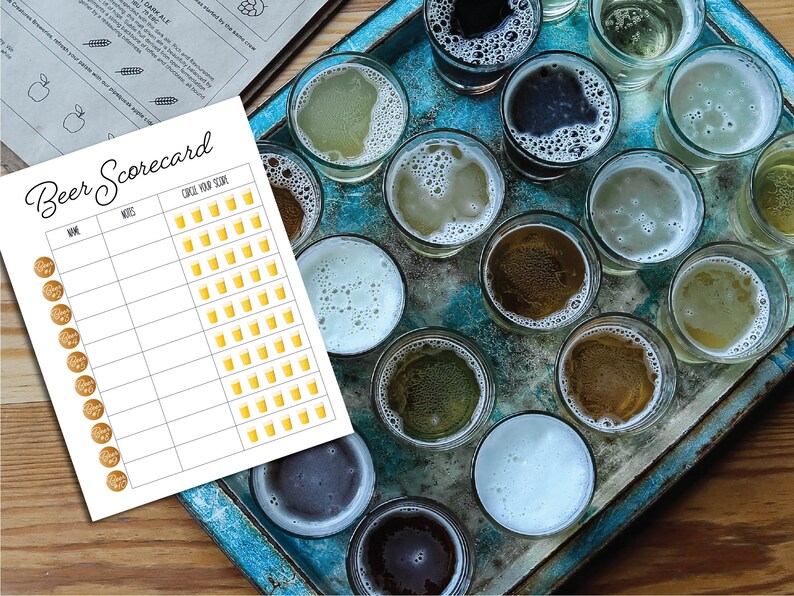 DARK ALE
IBU 79 EBC
started by the same crew
Creatures Breweries, refresh your palate with our pipsqueak apple cider
Beer Scorecard
NAME NOTES CIRCLE YOUR SCORE
Beer #1
Beer #2
Beer #3
Beer #4
Beer #5
Beer #6
Beer #7
Beer #8
Beer #9
Beer #10